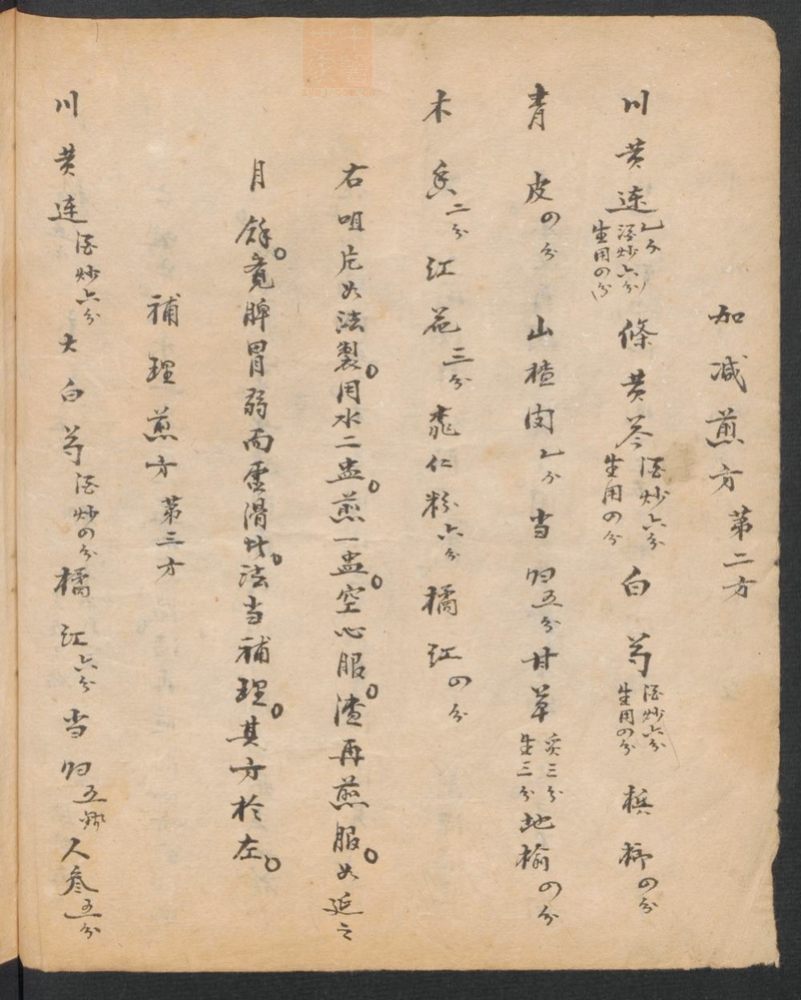 加减煎方 第二方
川黄連 乙分 酒炒六分 生用四分 條黄芩 酒炒六分 生用四分 白芍 酒炒六分 生用四分 槟榔四分
青皮四分 山楂肉乙分 当归五分 甘草 炙三分 生三分 地榆四分
木香二分 红花三分 桃仁粉六分 橘红四分
右咀片如法製。用水二盅。煎一盅。空心服。渣再煎服。如延之
月餘。覔脾胃弱而虚滑者。法当補理。其方於左。
補理煎方 第三方
川黄連 酒炒六分 大白芍 酒炒四分 橘红六分 当归五分 人参五分